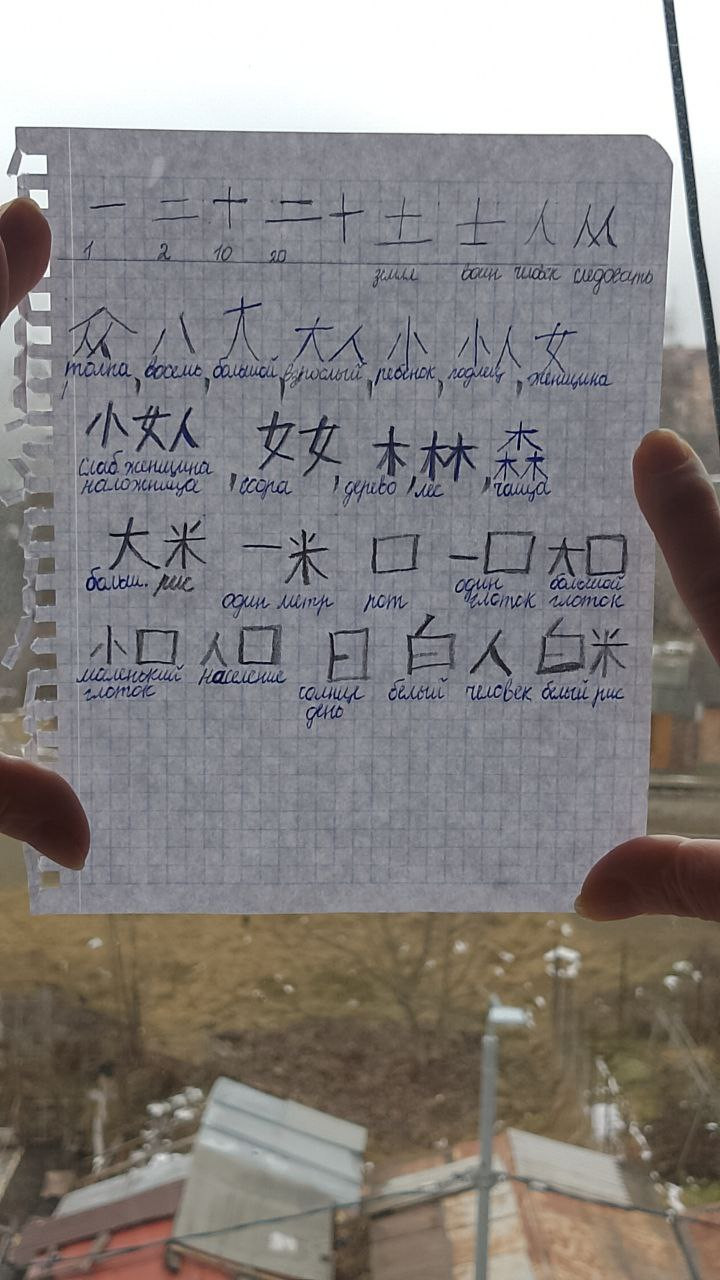 一 二 十 二十 土 士 人 从
1 2 10 20 земля воин человек следовать
众 八 大 大人 小 小人 女
толпа, восемь, большой, взрослый, ребёнок, подлец, женщина
小女人 女女 木 林 森
слаб. женщина
наложница, ссора, дерево, лес, чаща
大米 一米 口 一口 大口
больш. рис один метр рот один глоток большой глоток
小口 人口 日 白 人 白米
маленький глоток население солнце день белый человек белый рис